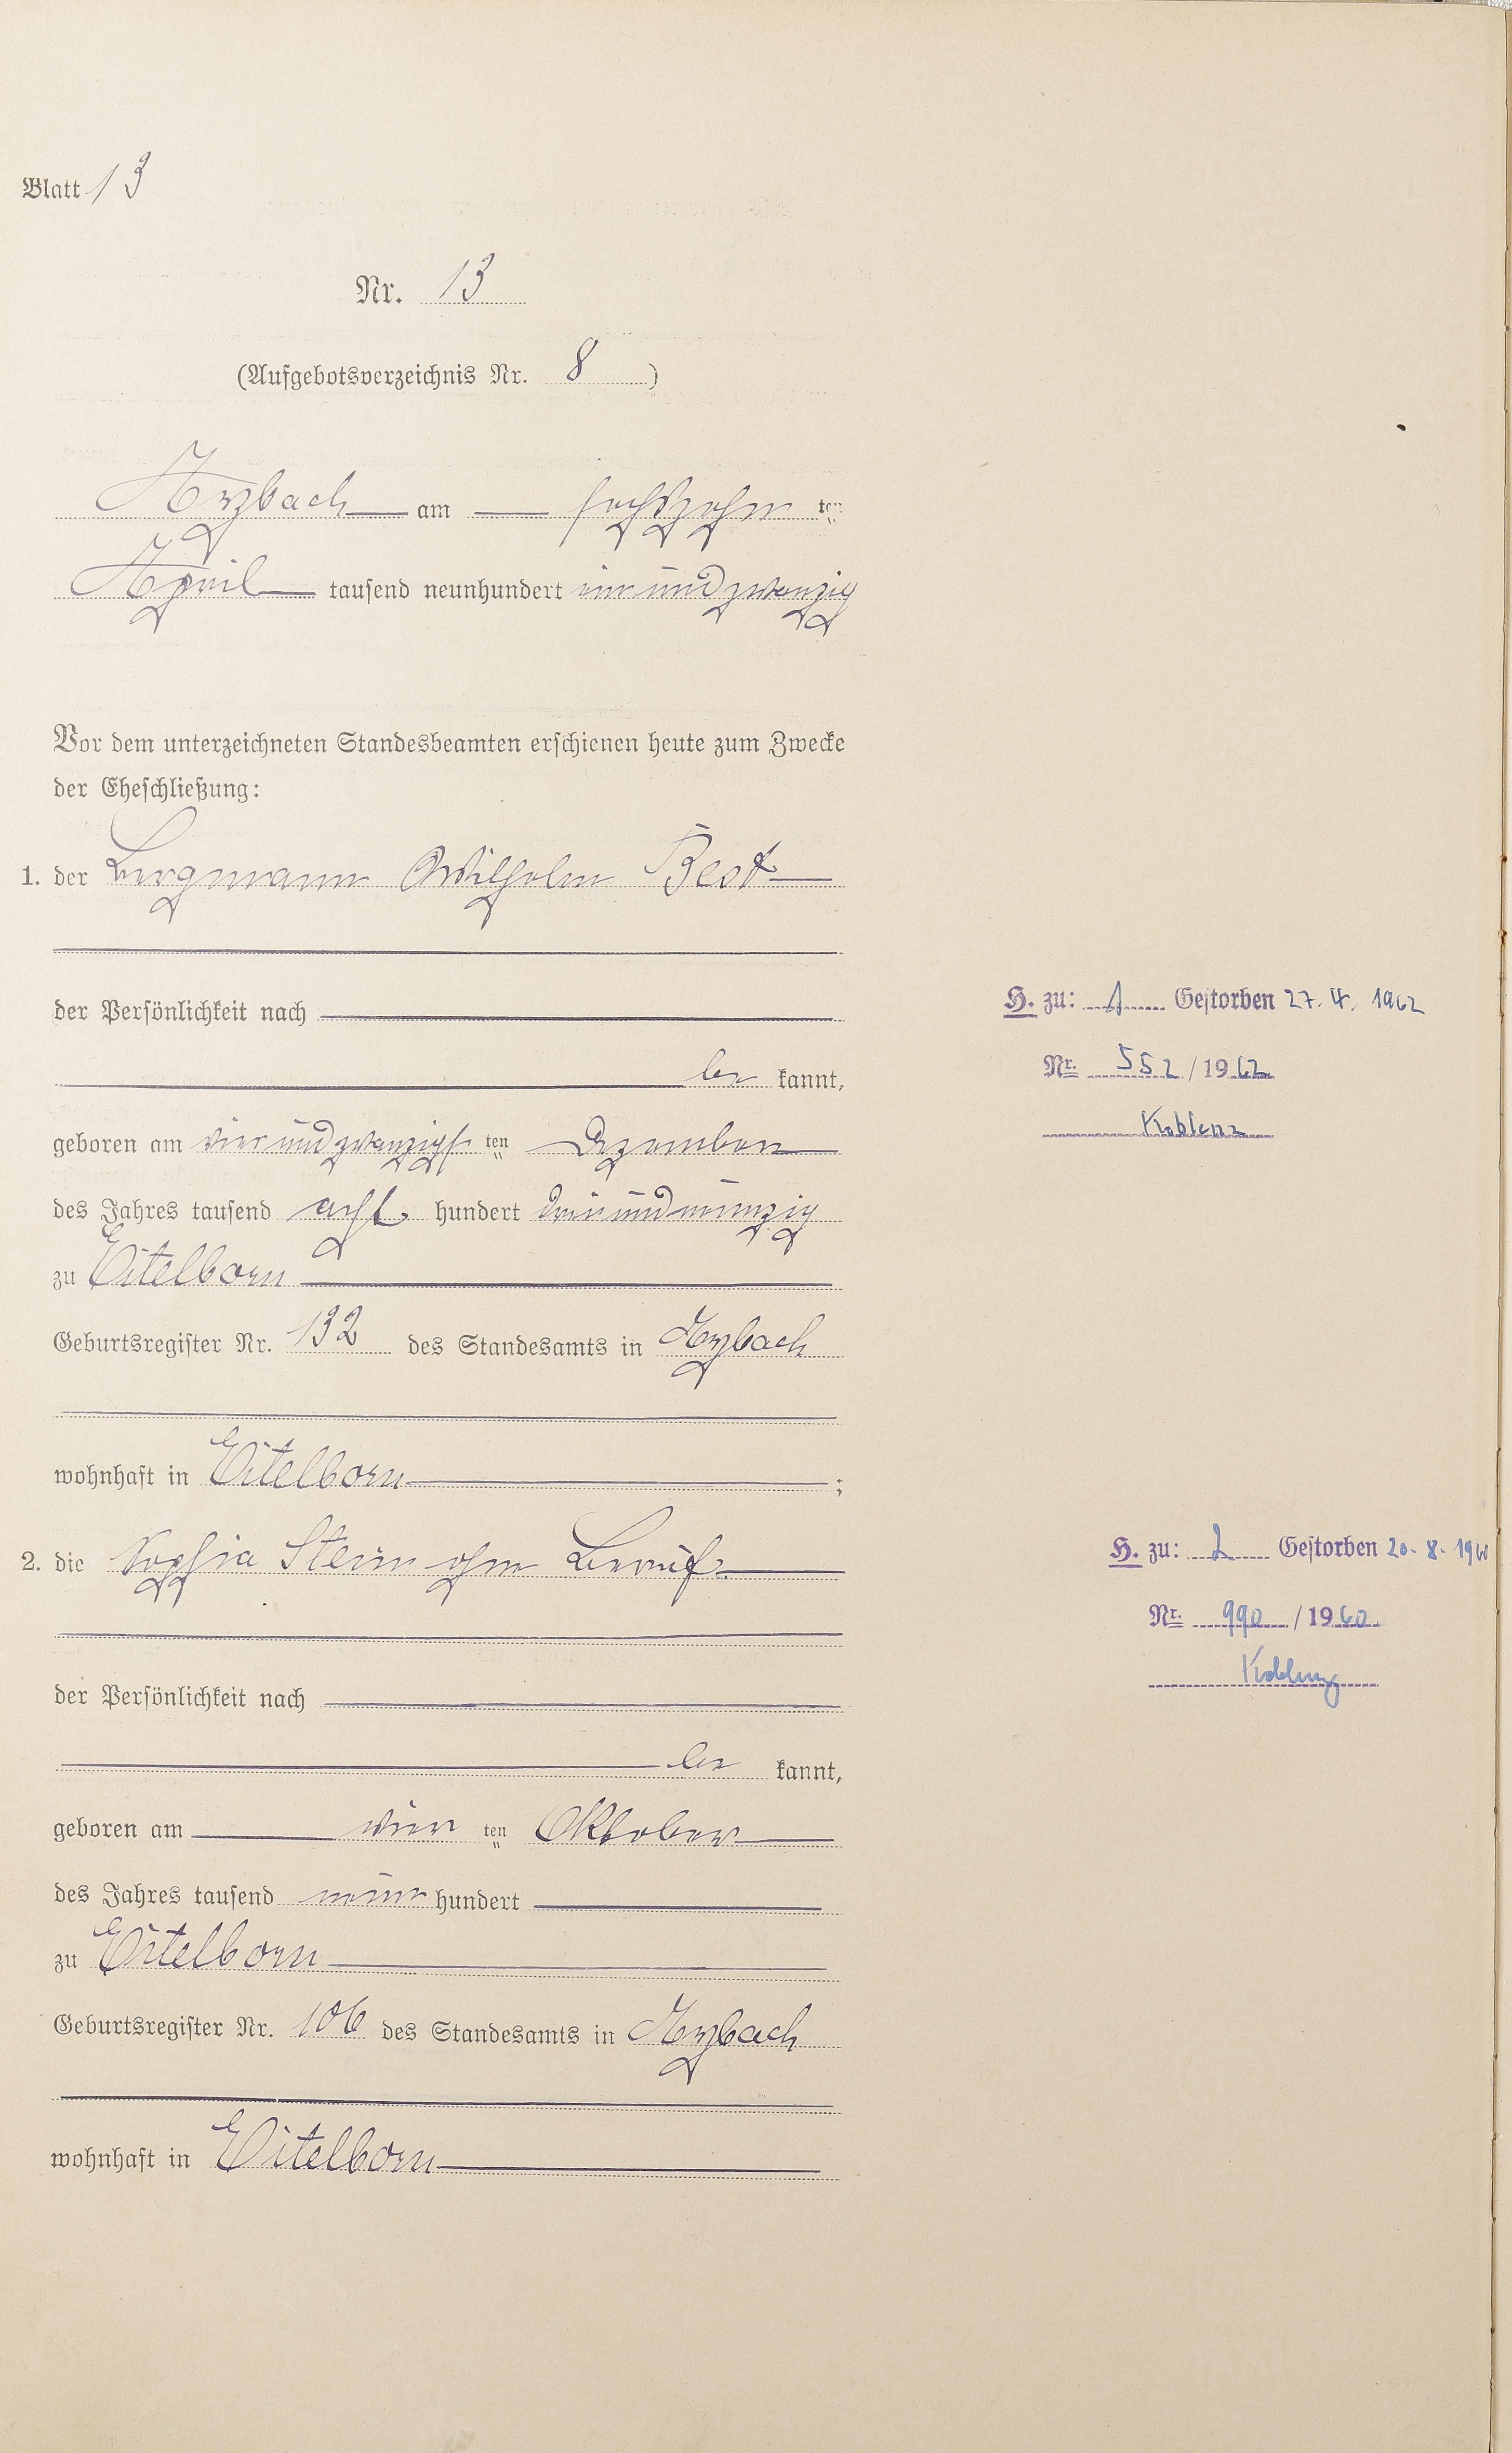 Blatt 13
Nr. 13
(Aufgebotsverzeichnis Nr. 8)
Arzbach am sechszehn ten
April tausend neunhundert ein und zwanzig
Vor dem unterzeichneten Standesbeamten erschienen heute zum Zwecke
der Eheschließung:
1. der Bergmann Wilhelm Best
der Persönlichkeit nach
be kannt,
H. zu: 1 Gestorben 27. 4. 1962
Nr. 552 / 1962
Koblenz
geboren am vier und zwanzigs ten Dezember
des Jahres tausend acht hundert drei und neunzig
zu Eitelborn
Geburtsregister Nr. 132 des Standesamts in Arzbach
wohnhaft in Eitelborn ;
2. die Sophia Stein ohne Beruf
H. zu: 2 Gestorben 20. 8. 1960
Nr. 990 / 1960
Koblenz
der Persönlichkeit nach
be kannt,
geboren am vier ten Oktober
des Jahres tausend neun hundert
zu Eitelborn
Geburtsregister Nr. 106 des Standesamts in Arzbach
wohnhaft in Eitelborn